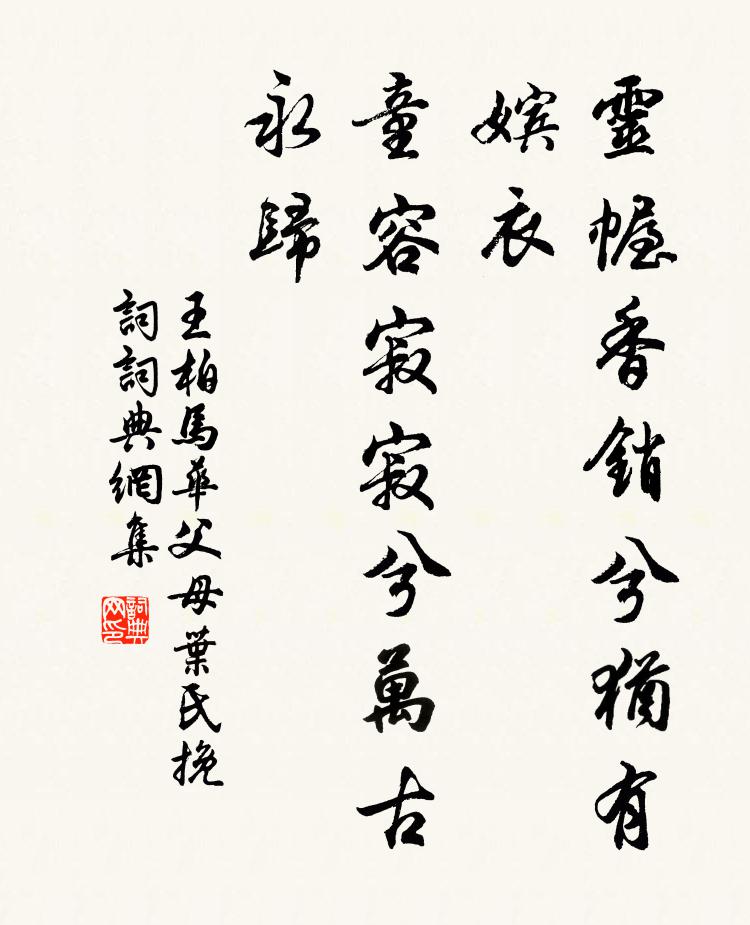 靈幄香銷兮猶有
嬪衣
童容寂寂兮萬古
永歸
王柏馬華父母葉氏挽
詞詞典網集
詞典网印